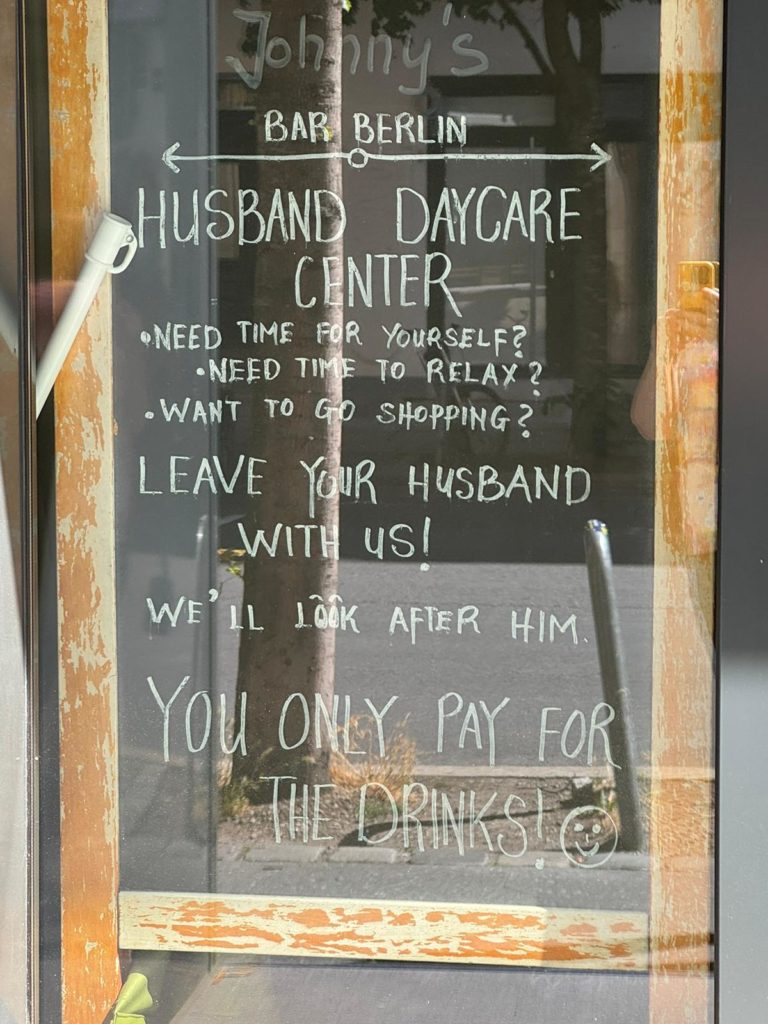 Johnny's
BAR BERLIN
HUSBAND DAYCARE
CENTER
•NEED TIME FOR YOURSELF?
•NEED TIME TO RELAX?
•WANT TO GO SHOPPING?
LEAVE YOUR HUSBAND
WITH US!
WE'LL LOOK AFTER HIM.
YOU ONLY PAY FOR
THE DRINKS!